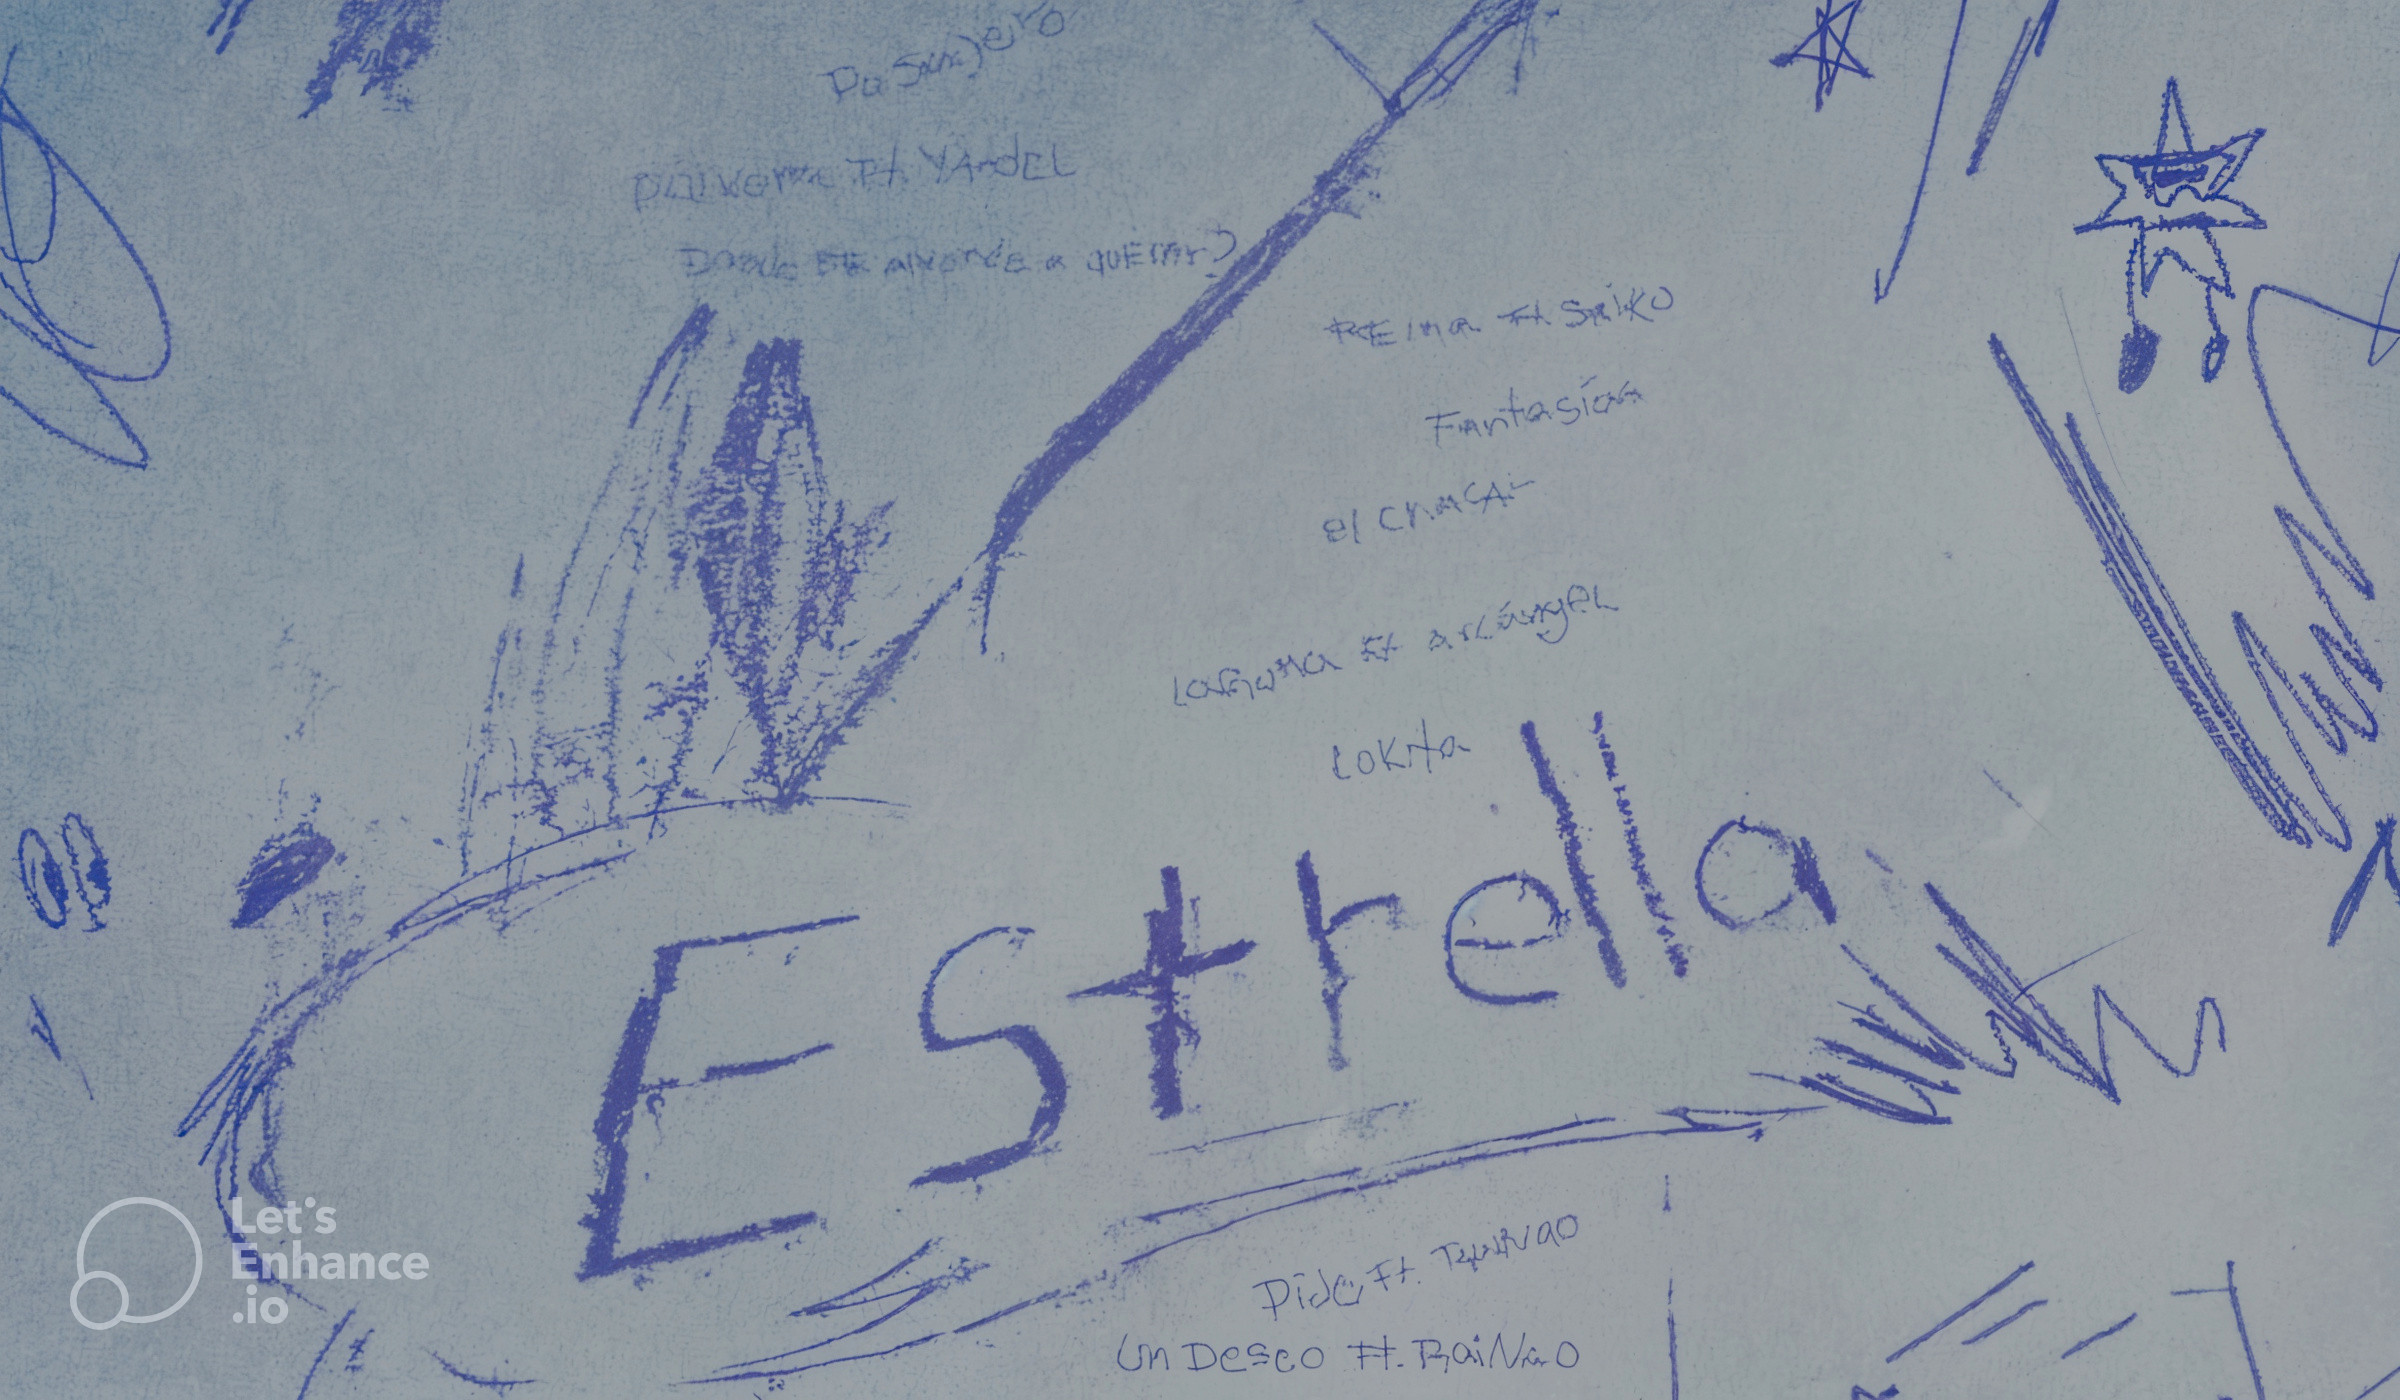 Pasajero
ft. YANDEL
Donde se aprende a querer?
REINA Ft SAIKO
Fantasías
el CHACAL
ft arcángel
LOKita
Estrella
Pide Ft.
Un Deseo Ft. RaiNao
Let's
Enhance
.io